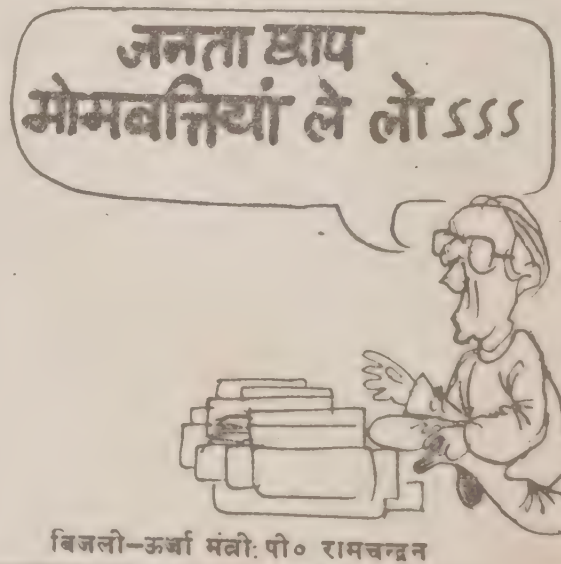 जनता छाप
मोमबत्तियां ले लो ऽऽऽ
बिजली-ऊर्जा मंत्री: पी० रामचन्द्रन